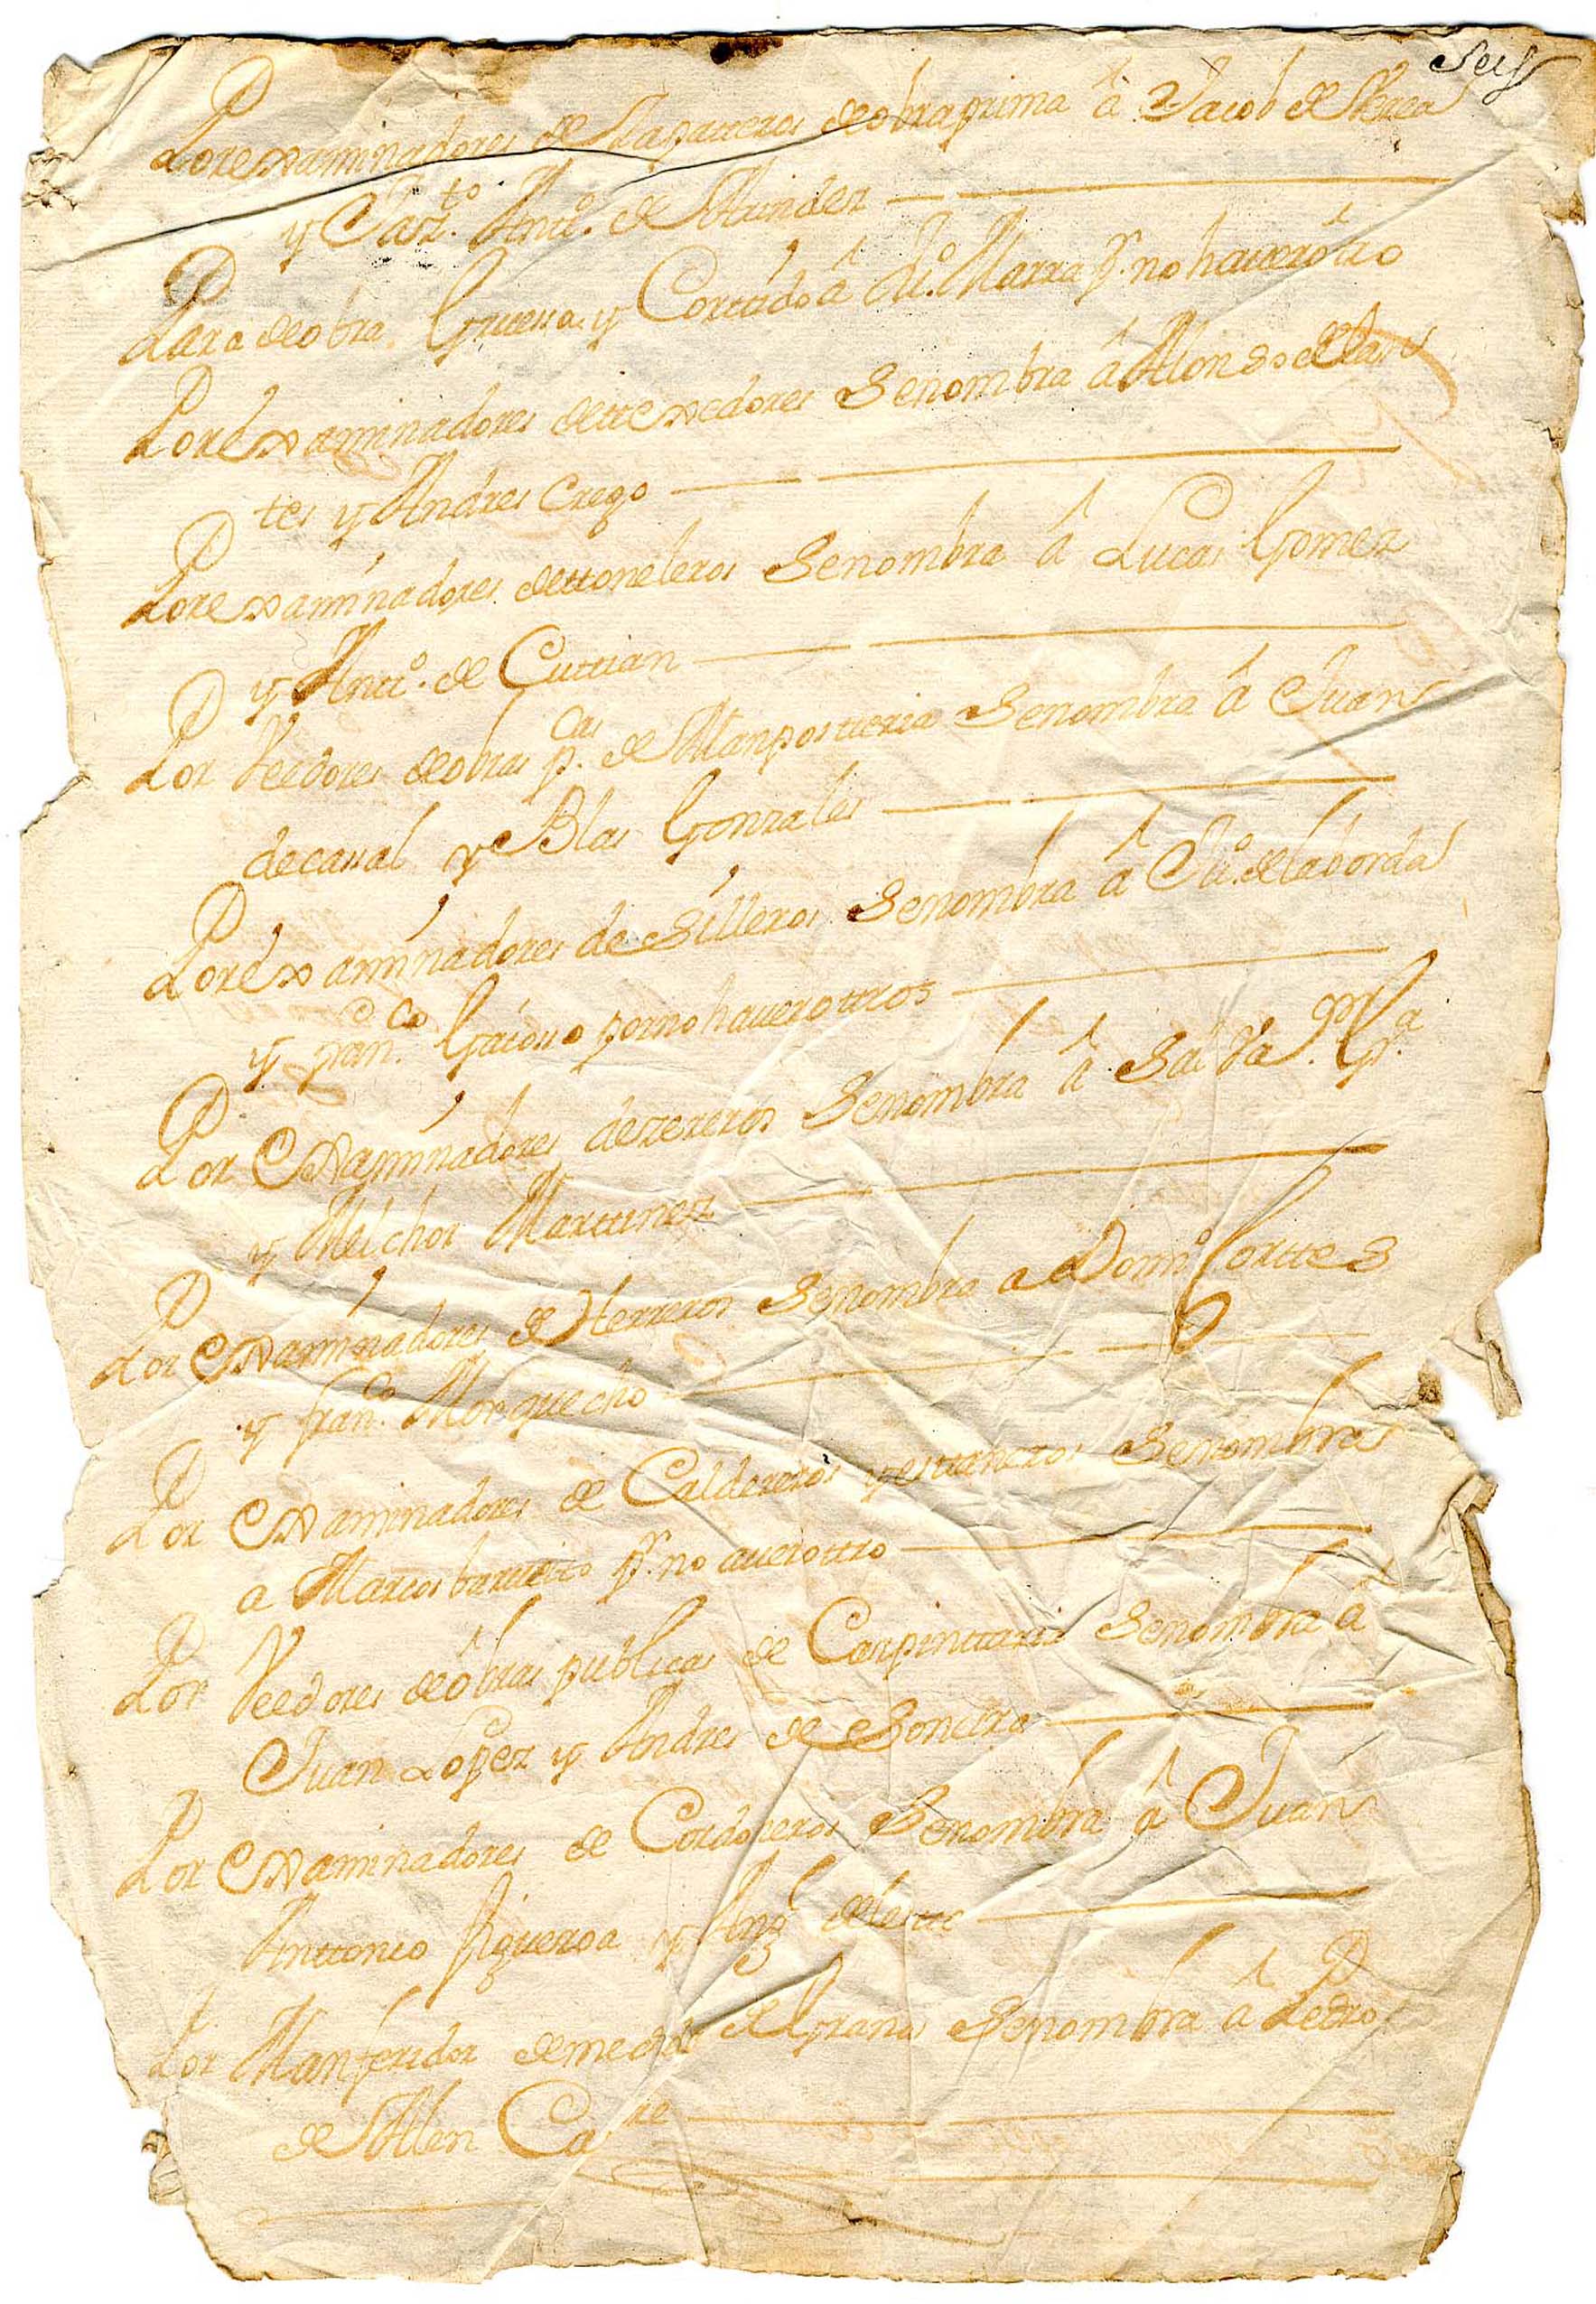 Seis
Por examinadores de Zapatteros de obra prima â Jacob de
y Ant.º de
Para de obra Gruessa y Corttado â Ju.º Marra p.r no hauer ótro
Por éxaminadores de ttexedores Se nombra â Alonso de
tes y Andres Crego
Por examinadores de ttoneleros Se nombra â Lucas Gomez
y Antt.º de Cuttian
Por Veedores de obras p.cas de Manpostteria Se nombra â Juan
de cassal y Blas Gonzales
Por éxaminadores de Silleros Se nombra â Ju.º de laborda
y fran.co por no hauer ottros
Por Examinadores de zereros Se nombra â Salva.or G.a
y Melchor Marttinez
Por Examinadores de Herreros Se nombra a Dom.º Corttes
y fran.co Morquecho
Por Examinadores de Caldereros y esttaneros Se nombra
a Marcos p.r no auer ottro
Por Veedores de óbras publicas de Carpintteria Se nombra â
Juan Lopez y Andres de
Por Examinadores de Cordoneros Se nombra â Juan
Anttonio figueroa y Ang.l
Por Manferidor de medidas de Granos Se nombra â Pedro
de